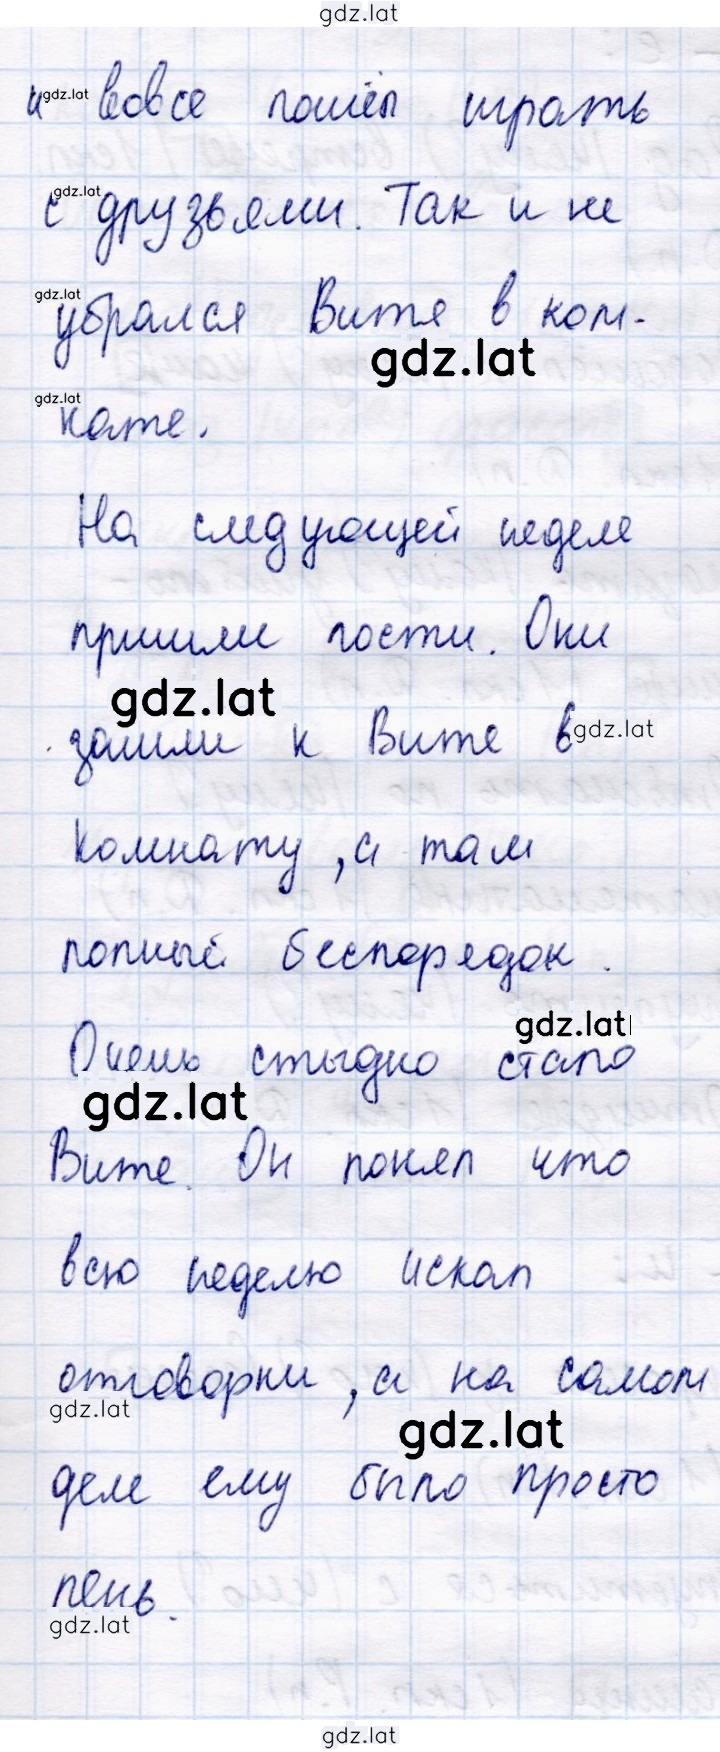 gdz.lat
и gdz.lat вовсе пошёл играть
gdz.lat
с друзьями. Так и не
gdz.lat
убрался Витя в ком-
gdz.lat
gdz.lat
нате.
На следующей неделе
пришли гости. Они
gdz.lat
зашли к Вите в gdz.lat
комнату, а там
полный беспорядок.
gdz.lat
Очень стыдно стало
gdz.lat
Вите. Он понял что
всю неделю искал
отговорки, а на самом
gdz.lat
gdz.lat
деле ему было просто
лень.
gdz.lat
gdz.lat